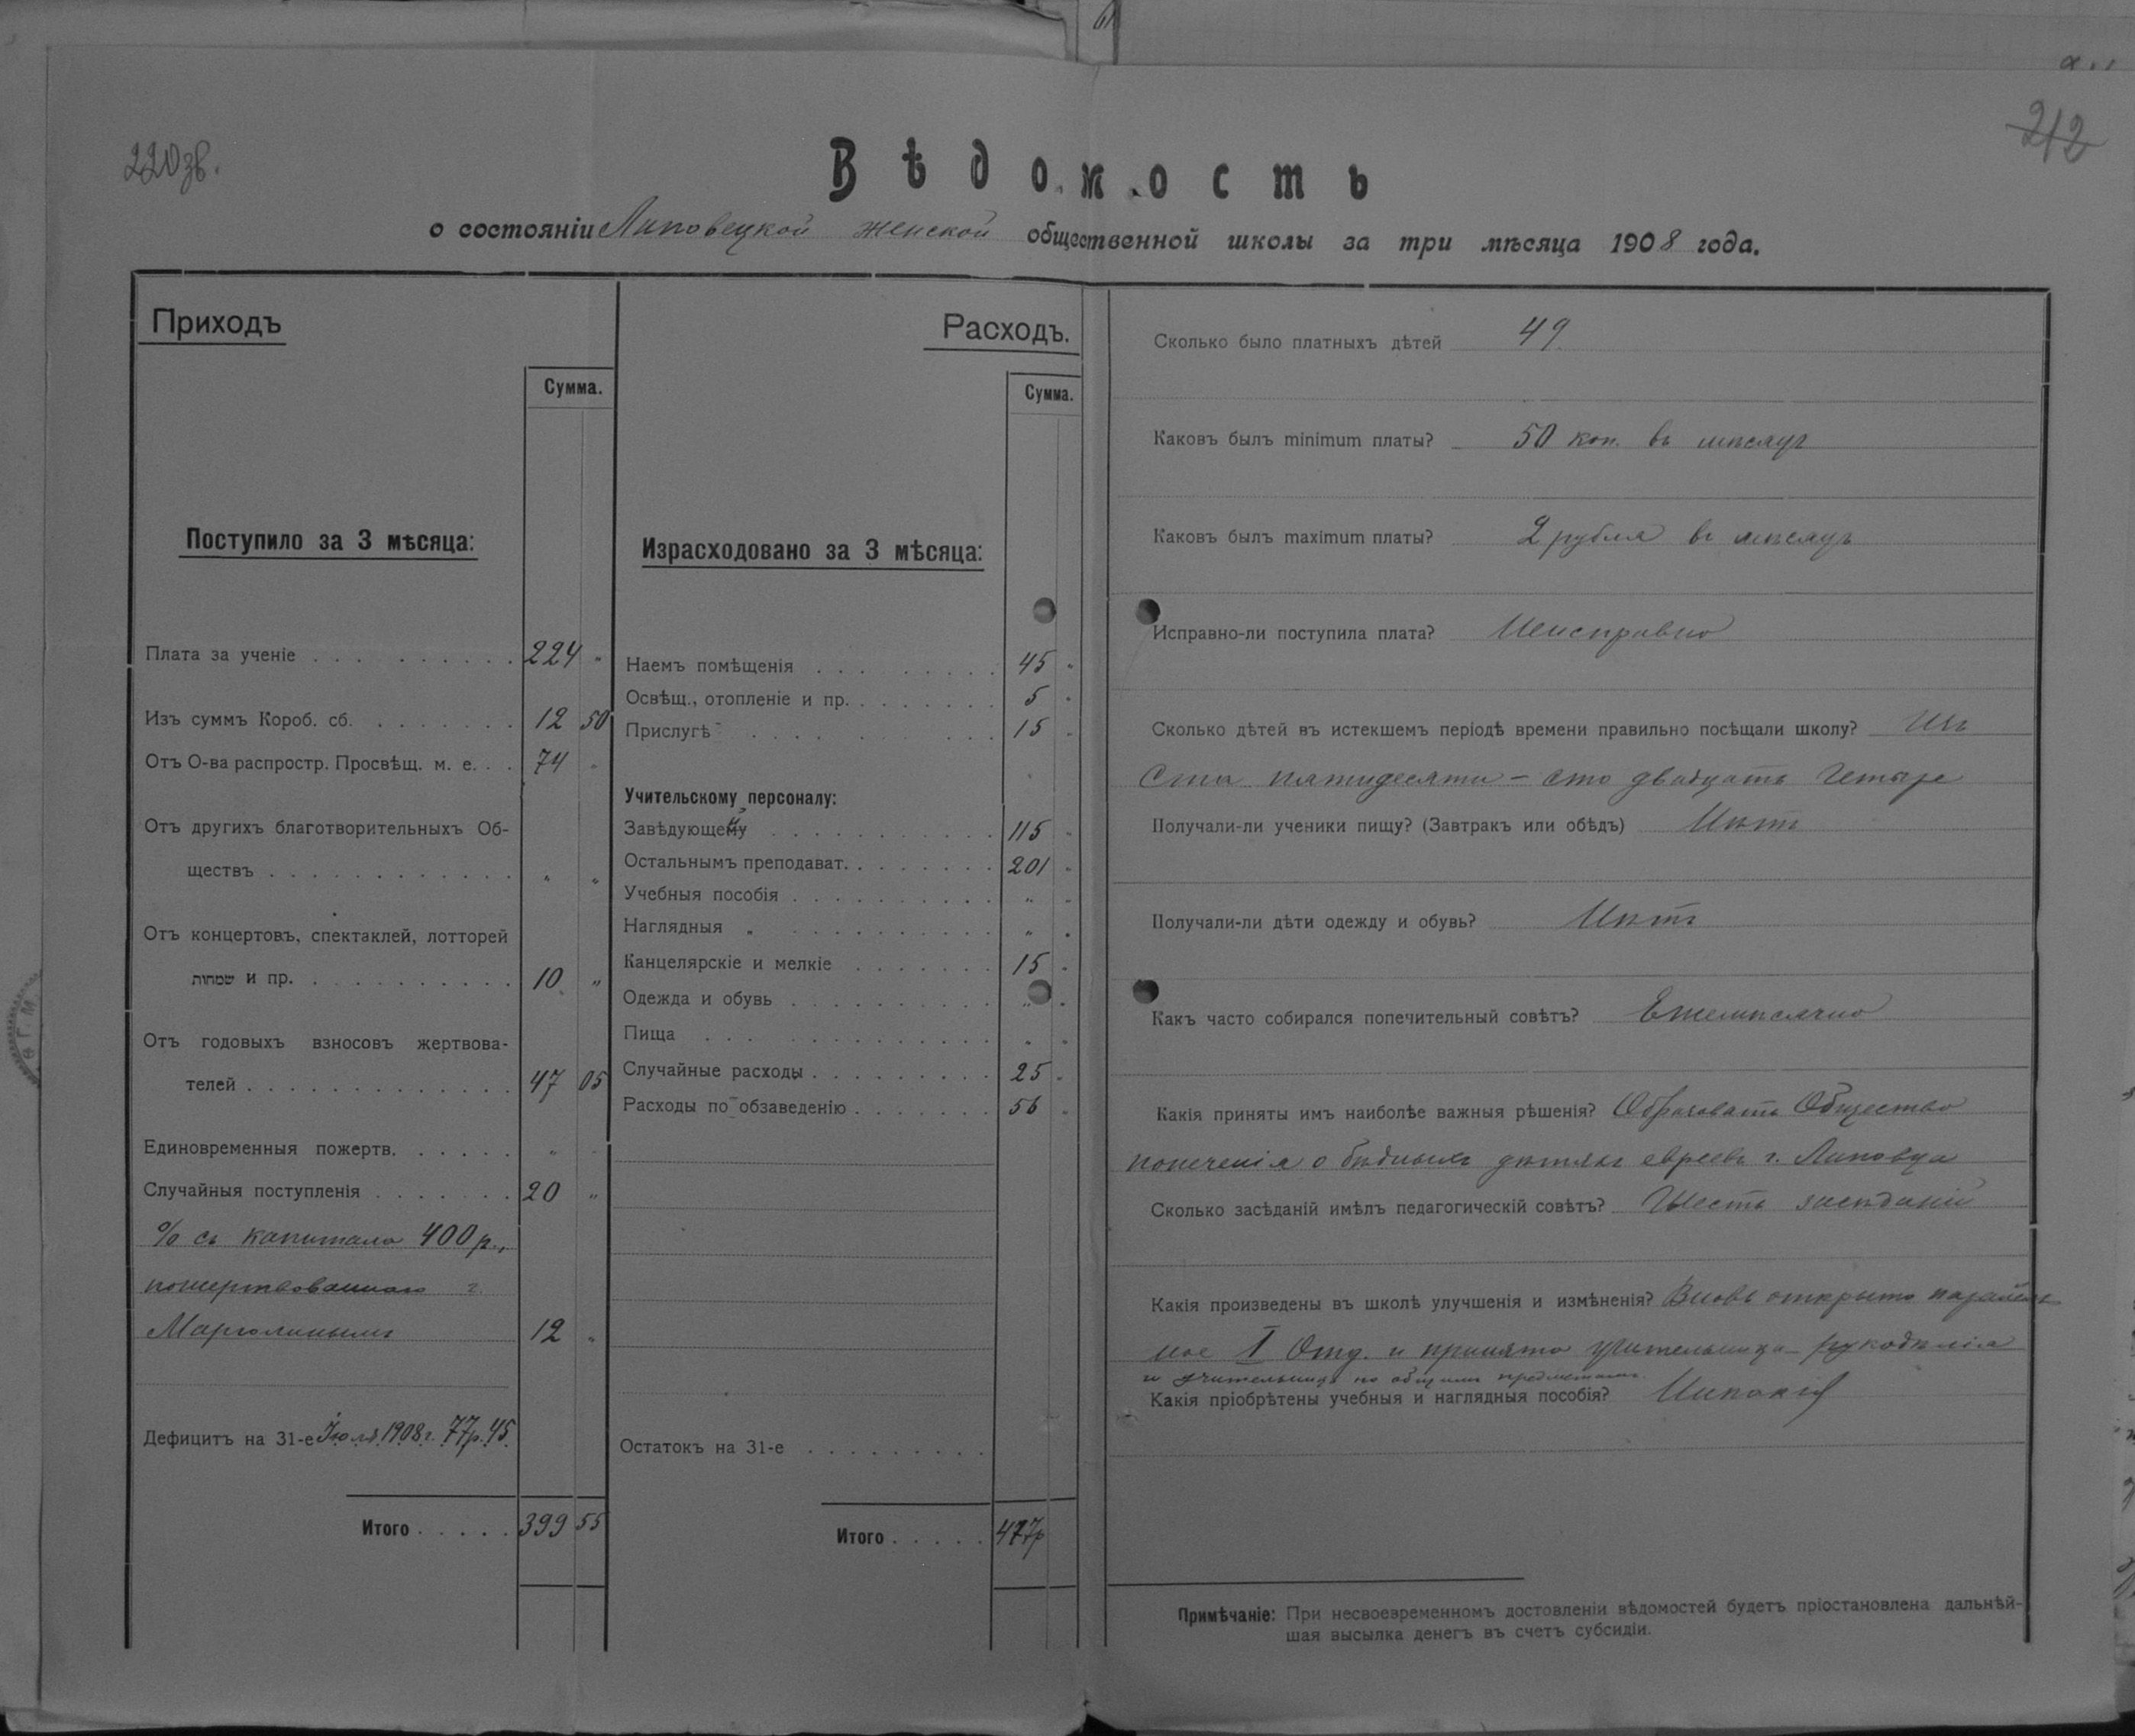 212
220зв.
Вѣдомость
о состояніи Липовецкой женской общественной школы за три мѣсяца 1908 года.
Приходъ
Сумма.
Поступило за 3 мѣсяца:
Плата за ученіе . . . . . . . . . . 224 "
Изъ суммъ Короб. сб. . . . . . . . 12 50
Отъ О-ва распростр. Просвѣщ. м. е. . . 74 "
Отъ другихъ благотворительныхъ Об-
ществъ . . . . . . . . . . . . . " "
Отъ концертовъ, спектаклей, лотторей
שמחות и пр. . . . . . . . . . . 10 "
Отъ годовыхъ взносовъ жертвова-
телей . . . . . . . . . . . . . 47 05
Единовременныя пожертв. . . . . . " "
Случайныя поступленія . . . . . . . 20 "
% съ капитала 400 р.,
пожертвованнаго г.
Марголинымъ 12 "
Дефицитъ на 31-е Іюля 1908 г. 77р.45
Итого . . . . . 399 55
Расходъ.
Сумма.
Израсходовано за 3 мѣсяца:
Наемъ помѣщенія . . . . . . . . . 45 "
Освѣщ., отопленіе и пр. . . . . . . . 5 "
Прислугѣ . . . . . . . . . . 15 "
Учительскому персоналу:
Завѣдующему . . . . . . . . . . . 115 "
Остальнымъ преподават. . . . . . . . 201 "
Учебныя пособія . . . . . . . . . . " "
Наглядныя " . . . . . . . . . . " "
Канцелярскіе и мелкіе . . . . . . . 15 "
Одежда и обувь . . . . . . . . . . " "
Пища . . . . . . . . . . . . . " "
Случайные расходы . . . . . . . . . 25 "
Расходы по обзаведенію . . . . . . . 56 "
Остатокъ на 31-е . . . . . . . . .
Итого . . . . . 477р
Сколько было платныхъ дѣтей 49
Каковъ былъ minimum платы? 50 коп. въ мѣсяцъ
Каковъ былъ maximum платы? 2 рубля въ мѣсяцъ
Исправно-ли поступила плата? Неисправно
Сколько дѣтей въ истекшемъ періодѣ времени правильно посѣщали школу? Изъ
ста пятидесяти – сто двадцать четыре
Получали-ли ученики пищу? (Завтракъ или обѣдъ) Нѣтъ
Получали-ли дѣти одежду и обувь? Нѣтъ
Какъ часто собирался попечительный совѣтъ? Ежемѣсячно
Какія приняты имъ наиболѣе важныя рѣшенія? Образовать Общество
попеченія о бѣдныхъ дѣтяхъ евреевъ г. Липовца
Сколько засѣданій имѣлъ педагогическій совѣтъ? Шесть засѣданій
Какія произведены въ школѣ улучшенія и измѣненія? Вновь открыто паралель
ное I Отд. и принята учительница рукодѣлія
и учительница по общимъ предметамъ.
Какія пріобрѣтены учебныя и наглядныя пособія? Никакія
Примѣчаніе: При несвоевременномъ достовленіи вѣдомостей будетъ пріостановлена дальнѣй-
шая высылка денегъ въ счетъ субсидіи.